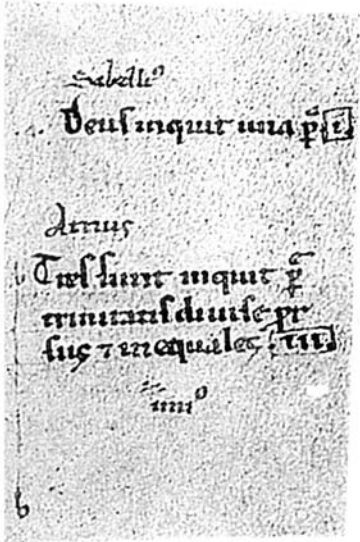 Sabelliꝰ
Deus inquit una p̃ .i.
Arrius
Tres sunt inquit p̃
trinitatis diuise pr
sus ⁊ inequales .III.
iiiiº
b